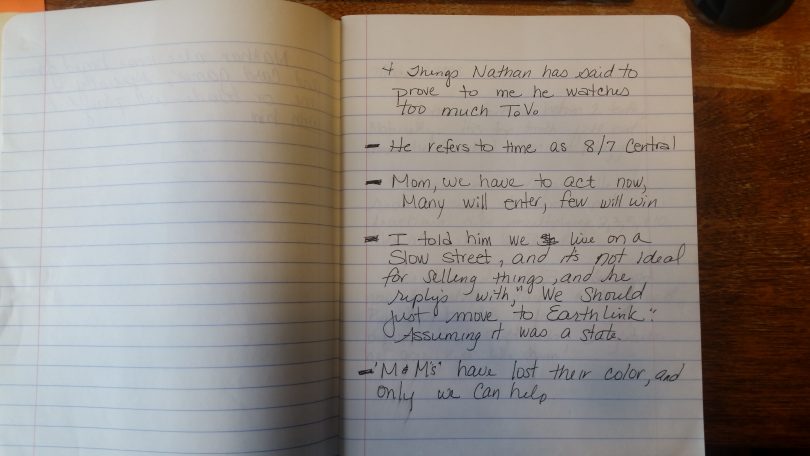 + Things Nathan has said to
prove to me he watches
too much T.V.
- He refers to time as 8/7 Central
- Mom, we have to act now,
Many will enter, few will win
- I told him we live on a
Slow street, and its not ideal
for selling things, and he
reply's with, "We should
just move to Earthlink".
Assuming it was a state.
- "M & M's" have lost their color, and
only we can help